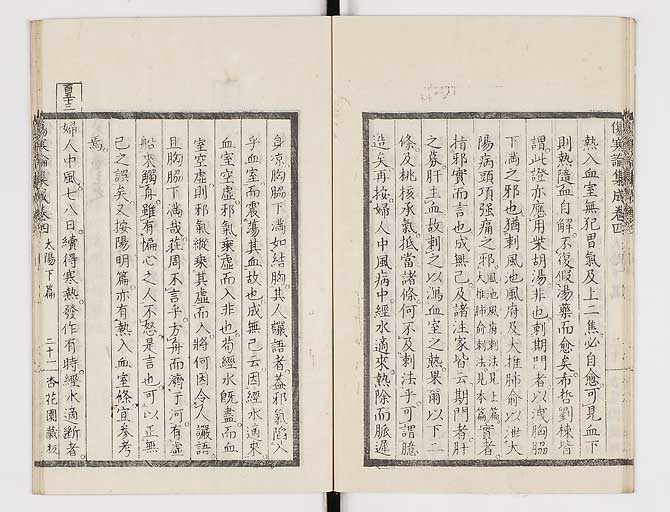 傷寒論集成卷四
熱入血室無犯胃氣及上二焦必自愈可見血下
則熱隨血自解不復假湯藥而愈矣希哲劉棟皆
謂此證亦應用柴胡湯非也刺期門者以洩胸脇
下滿之邪也猶刺風池風府及大推肺俞以泄大
陽病頭項強痛之邪風池風府刺法見上篇大推肺俞刺法見本篇實者
指邪實而言也成無己及諸注家皆云期門者肝
之募肝主血故刺之以瀉血室之熱果爾以下二
條及桃核承氣抵當諸條何不及刺法乎可謂臆
造矣再按婦人中風病中經水適來熱除而脈遲
身涼胸脇下滿如結胸其人讝語者蓋邪氣陷入
乎血室而震蕩其血故也成無己云因經水適來
血室空虛邪氣乘虛而入非也苟經水既盡而血
室空虛則邪氣縱乘其虛而入將何因令人讝語
且胸脇下滿哉莊周不言乎方舟而濟于河有虛
船來觸舟雖有惼心之人不怒是言也可以正無
己之誤矣又按陽明篇亦有熱入血室條宜參考
焉
百五十二
婦人中風七八日續得寒熱發作有時經水適斷者
傷寒論集成卷四 太陽下篇 二十一 杏花園藏板